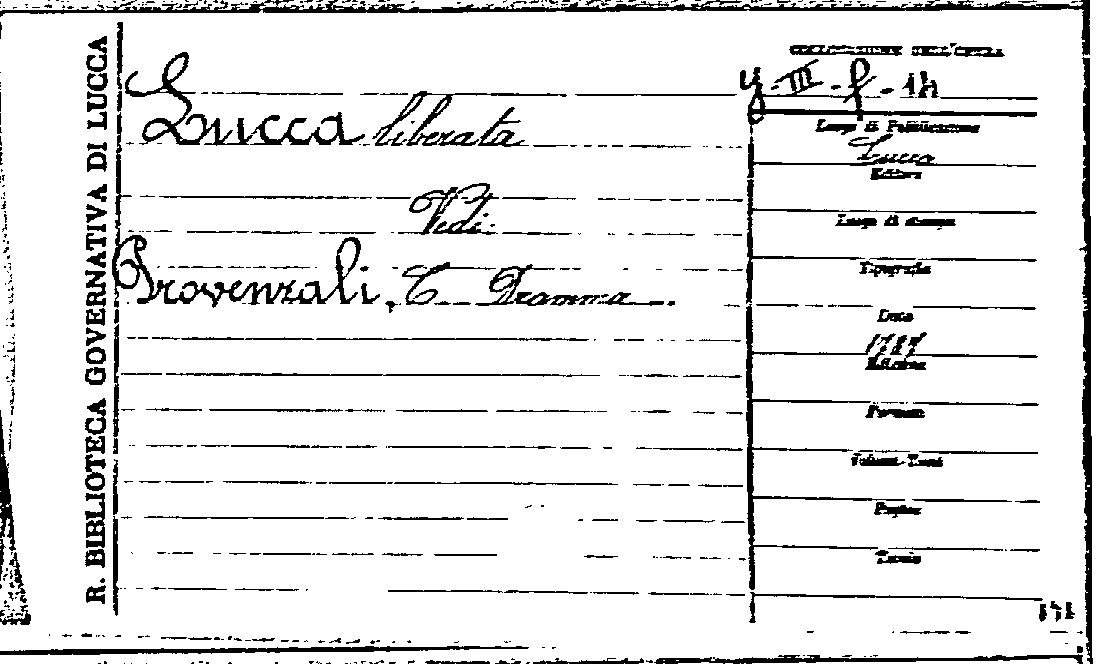 R. BIBLIOTECA GOVERNATIVA DI LUCCA
COLLOCAZIONE DELL'OPERA
y-III-f-14
Lucca liberata
Luogo di Pubblicazione
Lucca
Editore
Vedi:
Luogo di stampa
Provenzali, C. Dramma.
Tipografia
Data
Edizione
Formato
Volumi-Tomi
Pagine
Tavole